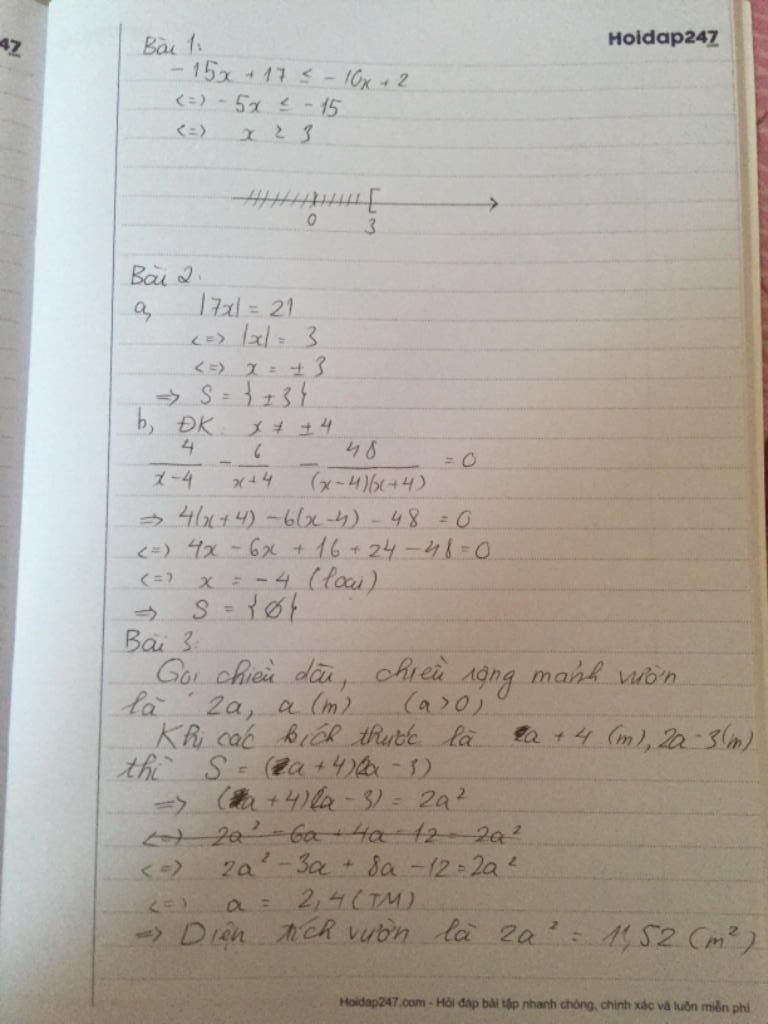 47
Hoidap247
Bài 1:
-15x + 17 ≤ -10x + 2
<=> -5x ≤ -15
<=> x ≥ 3
0 3
Bài 2:
a, |7x| = 21
<=> |x| = 3
<=> x = ±3
=> S = {±3}
b, ĐK: x ≠ ±4
4/(x-4) - 6/(x+4) - 48/((x-4)(x+4)) = 0
=> 4(x+4) - 6(x-4) - 48 = 0
<=> 4x - 6x + 16 + 24 - 48 = 0
<=> x = -4 (loại)
=> S = {∅}
Bài 3:
Gọi chiều dài, chiều rộng mảnh vườn
là 2a, a (m) (a > 0)
Khi các kích thước là a + 4 (m), 2a - 3 (m)
thì S = (a + 4)(2a - 3)
=> (a + 4)(2a - 3) = 2a²
<=> 2a² - 6a + 4a - 12 = 2a²
<=> 2a² - 3a + 8a - 12 = 2a²
<=> a = 2,4 (TM)
=> Diện tích vườn là 2a² = 11,52 (m²)
Hoidap247.com - Hỏi đáp bài tập nhanh chóng, chính xác và luôn miễn phí